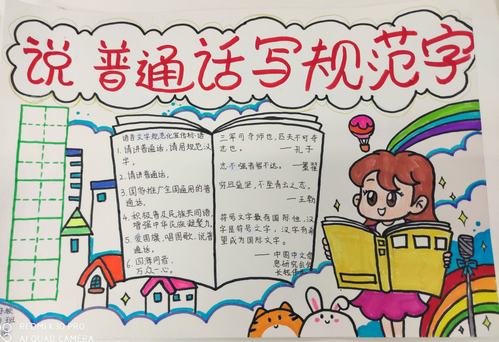 说普通话写规范字
语言文字规范化宣传标语
1.请讲普通话,请用规范汉
字。
2.请讲普通话。
3.国家推广全国通用的普通
话。
4.积极普及民族共同语,
增强中华民族凝聚力。
5.爱国旗,唱国歌,说普
通话。
6.国落同音,
万众一心。
三军可夺帅也,匹夫不可夺
志也。
——孔子
志不强者智不达。
——墨翟
穷且益坚,不坠青云之志。
——王勃
符号文字最有国际性,汉
字是符号文字,汉字有希
望成为国际文字。
——中国中文信
息研究会会
REDMI K30 PRO
AI QUAD CAMERA